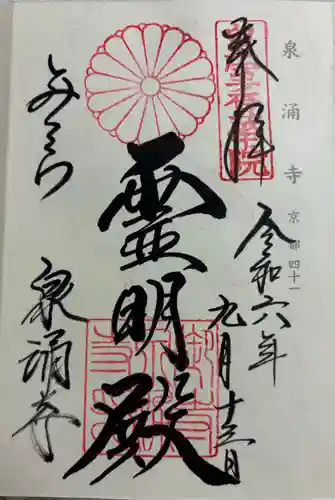 泉涌寺 京都四十一
奉拝
令和六年
九月十三日
霊明殿
みてら
泉涌寺